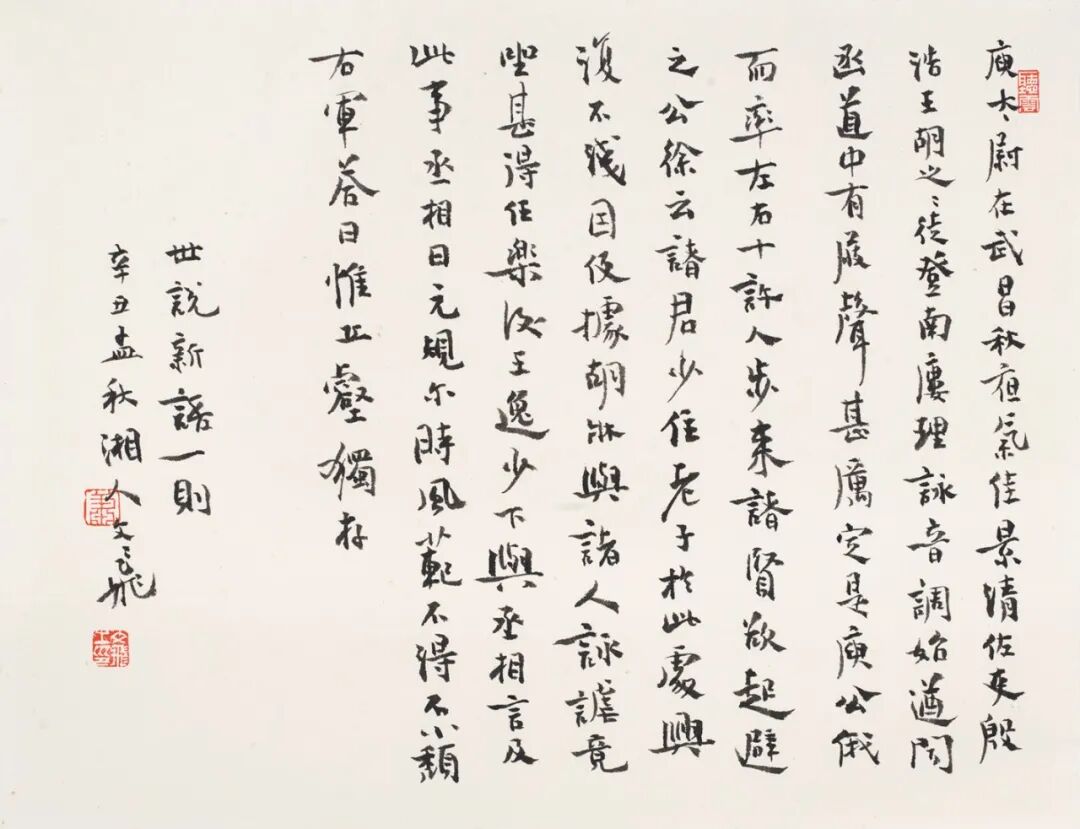 庾太尉在武昌秋夜氣佳景清佐吏殷
浩王胡之〻徒登南樓理詠音調始遒聞
函道中有屐聲甚厲定是庾公俄
而率左右十許人步來諸賢欲起避
之公徐云諸君少住老子於此處興
復不淺因便據胡牀與諸人詠謔竟
坐甚得任樂後王逸少下與丞相言及
此事丞相曰元規尔時風範不得不小頹
右軍荅曰惟丘壑獨存
世說新語一則
辛丑孟秋湘人文飛
聽雲